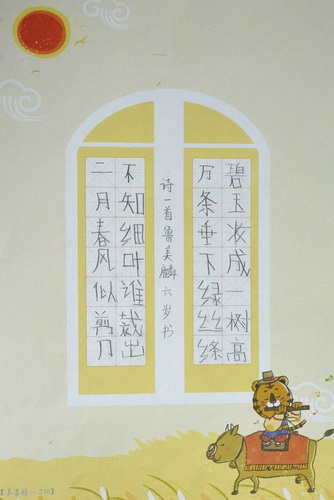 碧玉妆成一树高
万条垂下绿丝绦
诗一首鲁美麟六岁书
不知细叶谁裁出
二月春风似剪刀